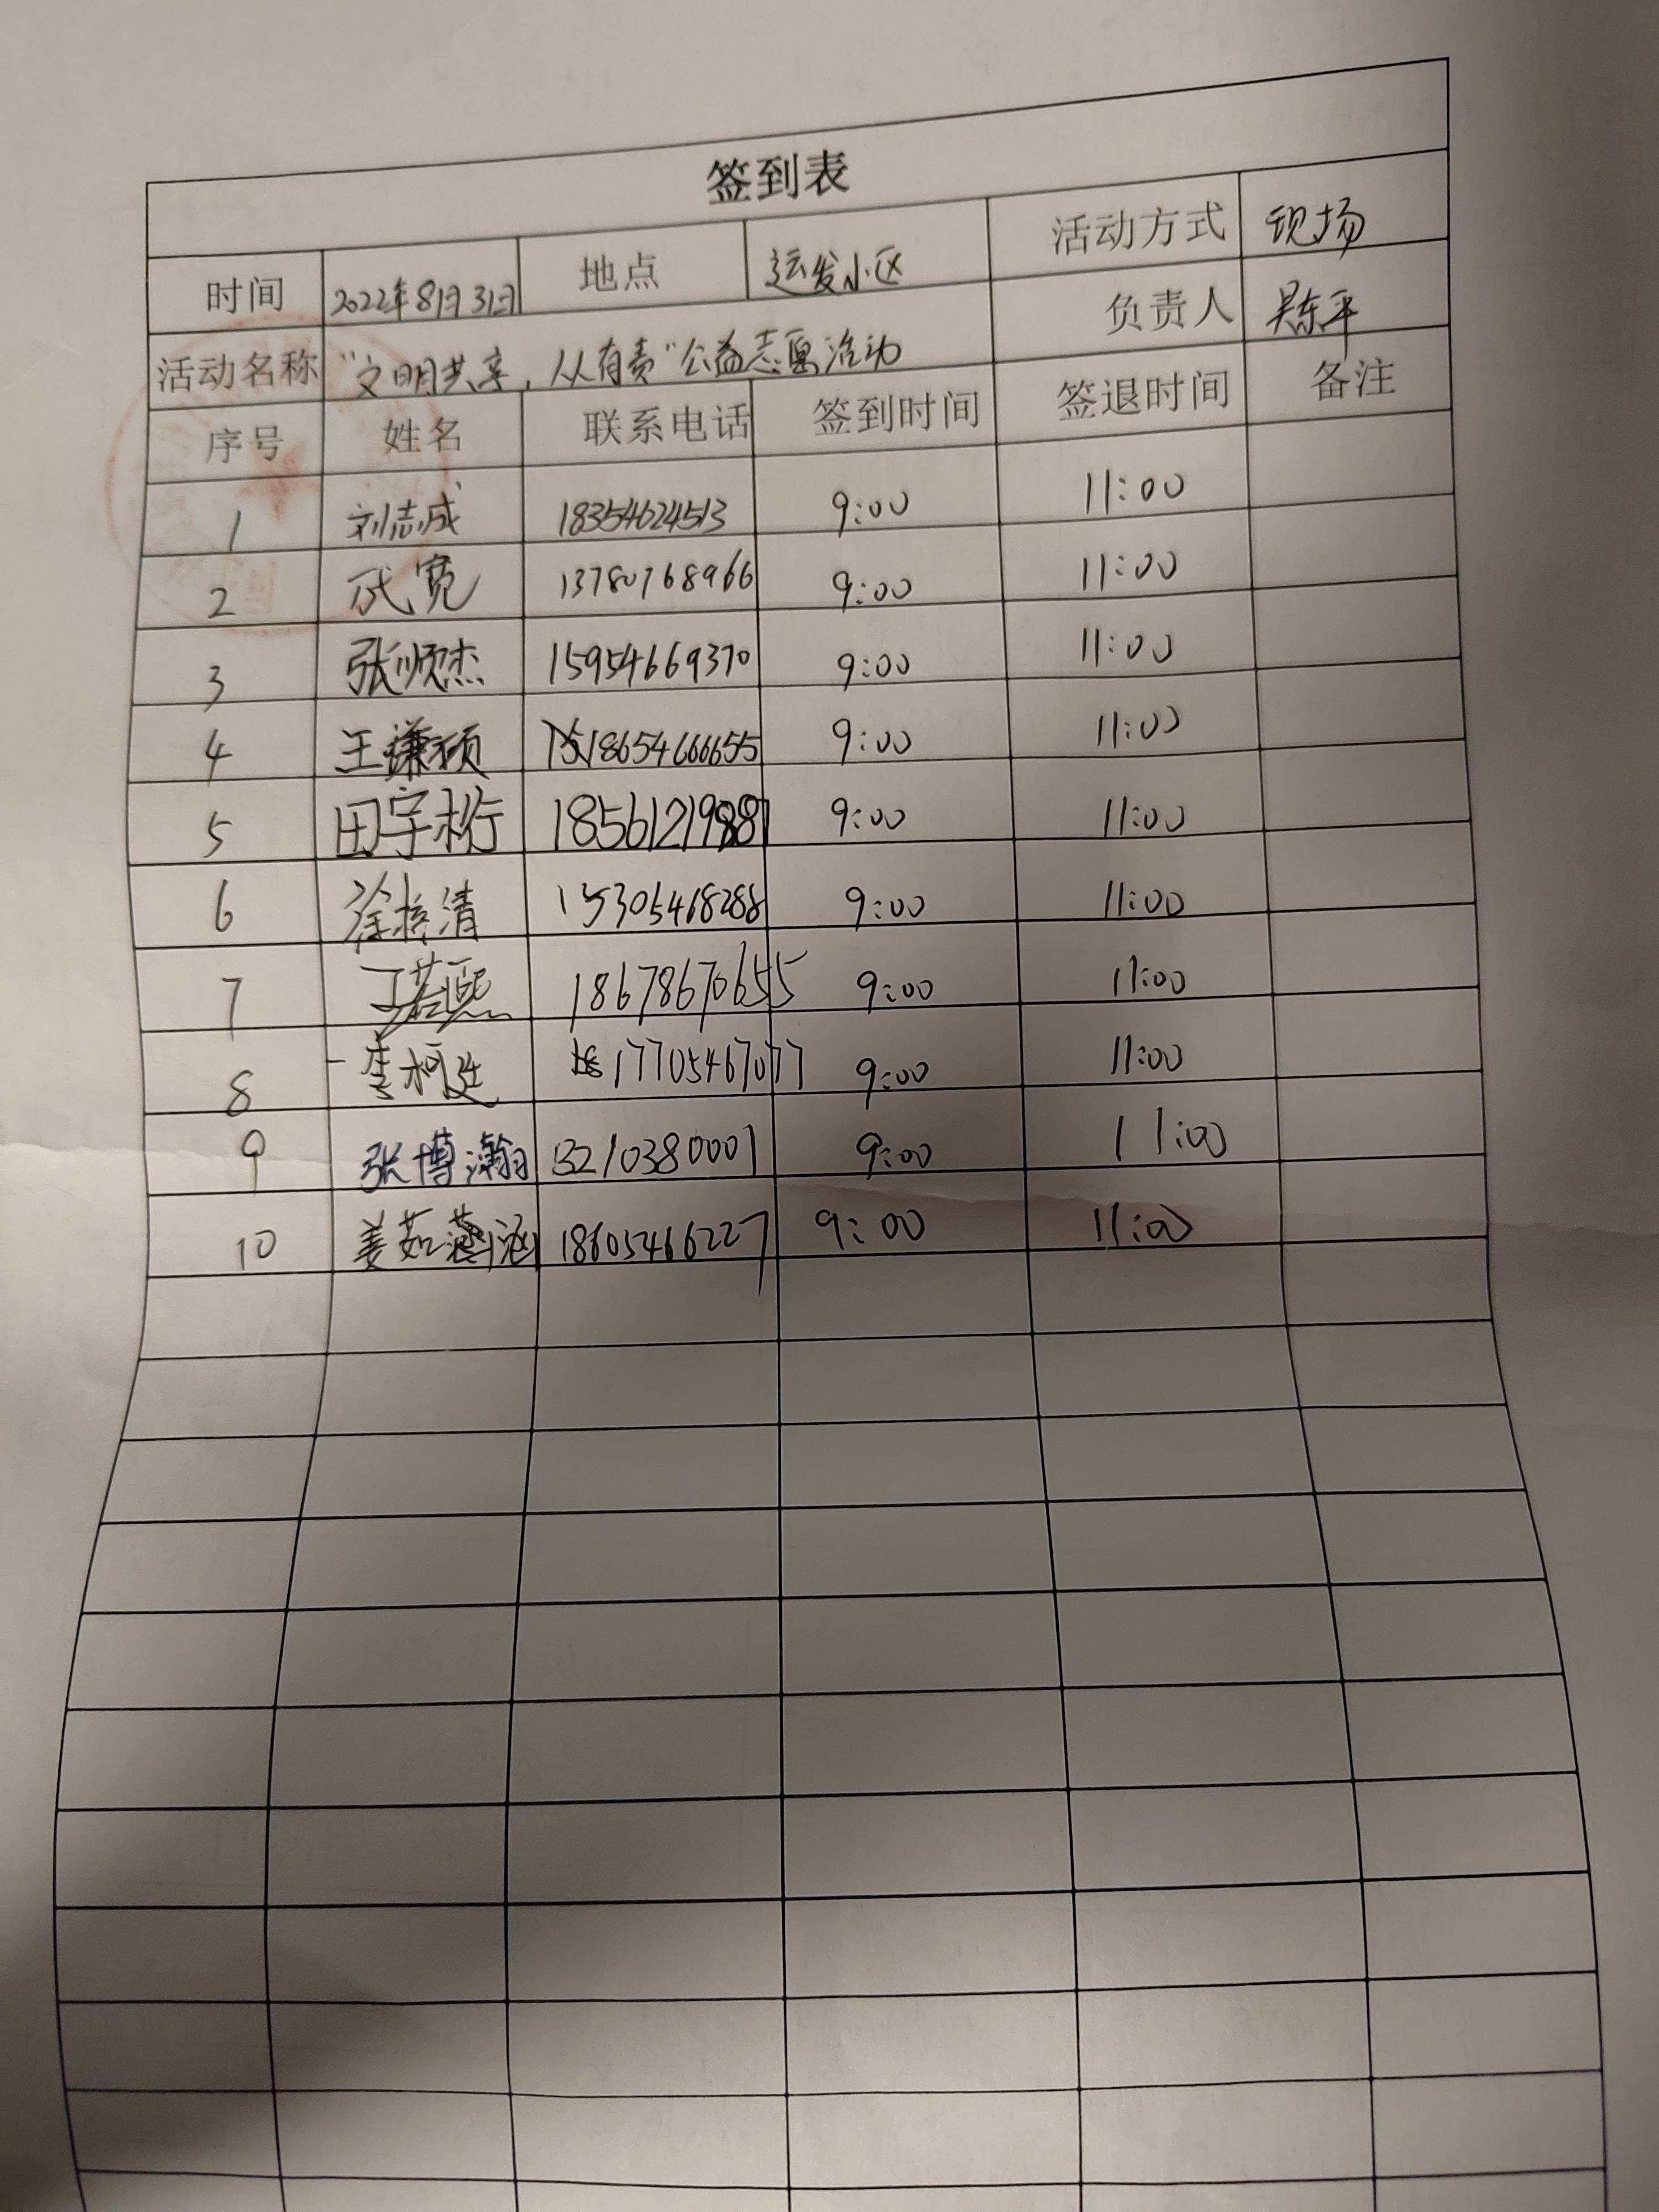 签到表
时间 2022年8月31日 地点 运发小区 活动方式 现场
活动名称 "文明共享，人人有责"公益志愿活动 负责人 吴东平
序号 姓名 联系电话 签到时间 签退时间 备注
1 刘志成 18354624513 9:00 11:00
2 成宽 13780768966 9:00 11:00
3 张顺杰 15954669370 9:00 11:00
4 王谦硕 18654666655 9:00 11:00
5 田宇桁 18561219887 9:00 11:00
6 徐梓清 15305468288 9:00 11:00
7 丁若熙 18678670655 9:00 11:00
8 李柯廷 17705467077 9:00 11:00
9 张博瀚 13210380001 9:00 11:00
10 姜茹涵 18605466227 9:00 11:00